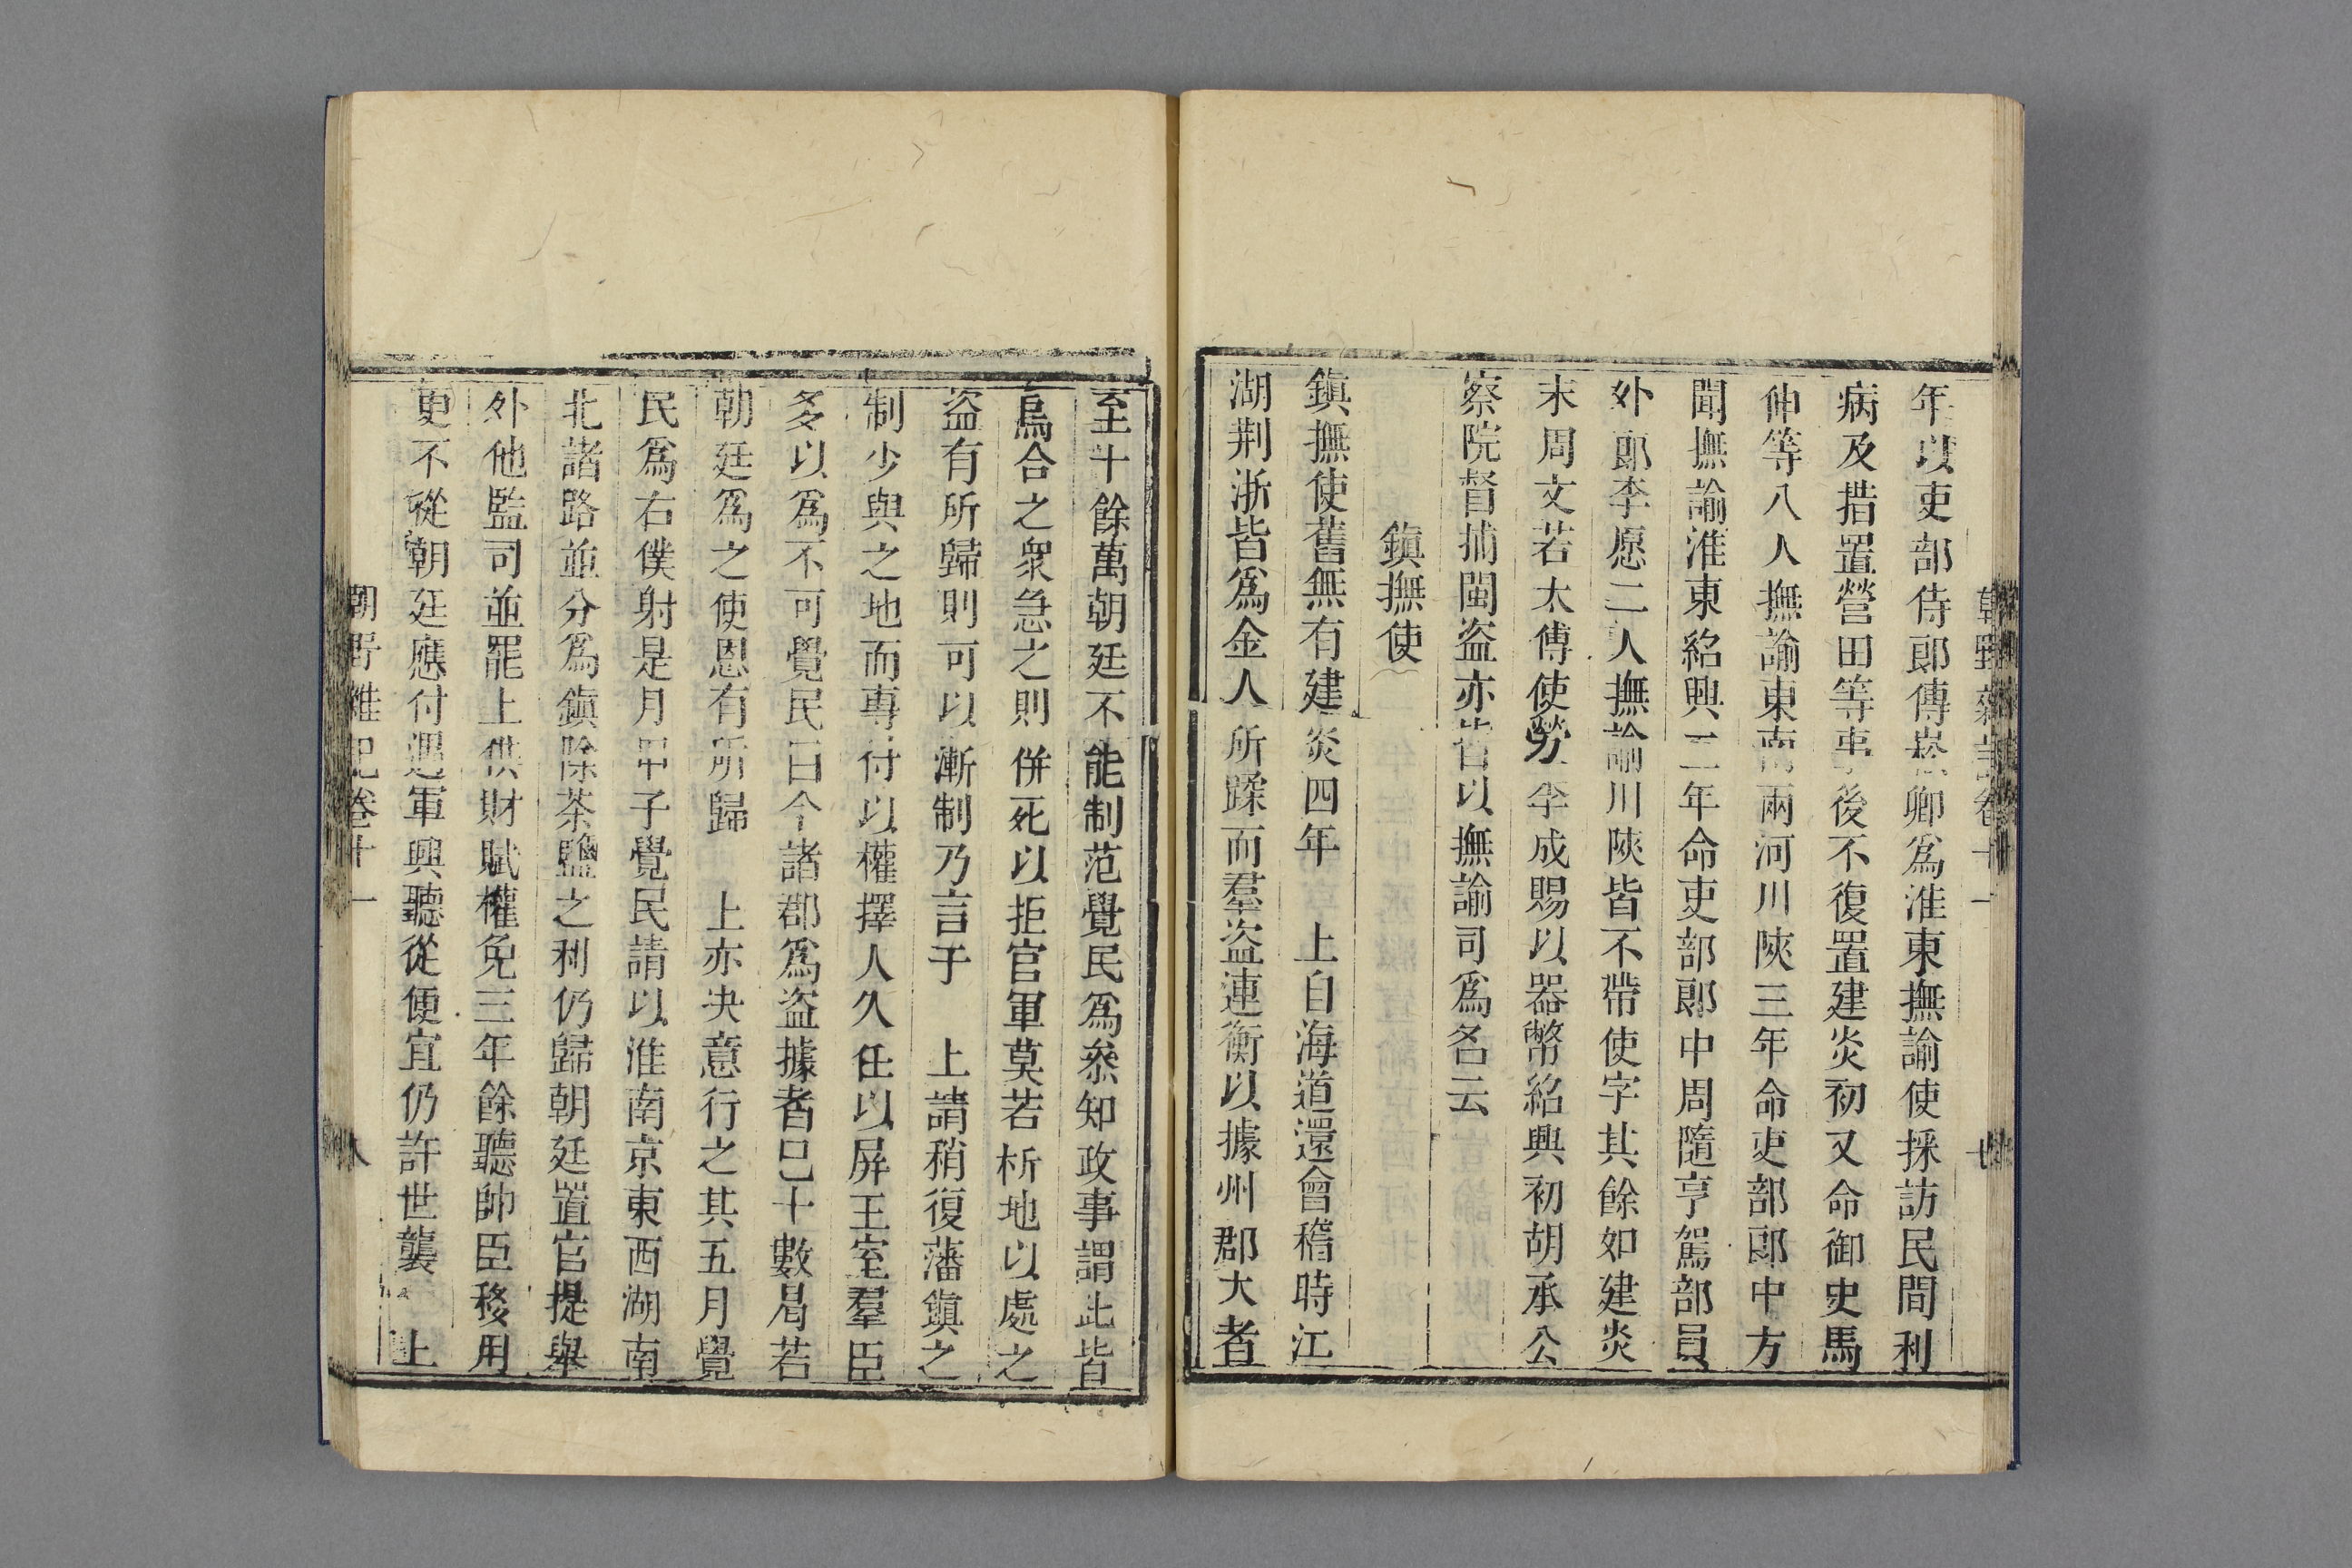 朝野雜記卷十一 七
年以吏部侍郎傅崧卿爲淮東撫諭使採訪民間利
病及措置營田等事後不復置建炎初又命御史馬
伸等八人撫諭東南兩河川陝三年命吏部郎中方
聞撫諭淮東紹興二年命吏部郎中周隨亨駕部員
外郎李愿二人撫諭川陝皆不帶使字其餘如建炎
末周文若太傅使勞李成賜以器幣紹興初胡承公
察院督捕閩盜亦皆以撫諭司爲名云
鎭撫使
鎭撫使舊無有建炎四年 上自海道還會稽時江
湖荆浙皆爲金人所蹂而羣盜連衡以據州郡大者
至十餘萬朝廷不能制范覺民爲叅知政事謂此皆
烏合之衆急之則併死以拒官軍莫若析地以處之
盜有所歸則可以漸制乃言于 上請稍復藩鎭之
制少與之地而專付以權擇人久任以屏王室羣臣
多以爲不可覺民曰今諸郡爲盜據者已十數曷若
朝廷爲之使恩有所歸 上亦决意行之其五月覺
民爲右僕射是月甲子覺民請以淮南京東西湖南
北諸路並分爲鎭除茶鹽之利仍歸朝廷置官提舉
外他監司並罷上供財賦權免三年餘聽帥臣移用
更不從朝廷應付遇軍興聽從便宜仍許世襲 上
朝野雜記卷十一 八